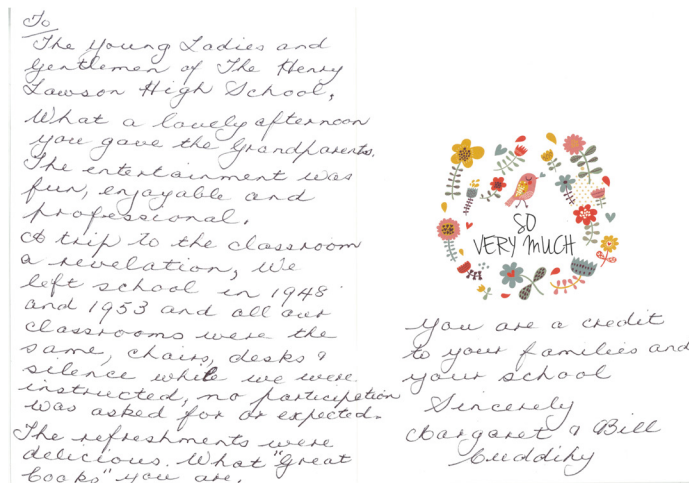 To
The Young Ladies and
Gentlemen of The Henry
Lawson High School,
What a lovely afternoon
you gave the Grandparents.
The entertainment was
fun, enjoyable and
professional.
A trip to the classroom
a revelation, We
left school in 1948
and 1953 and all our
classrooms were the
same, chairs, desks &
silence while we were
instructed, no participation
was asked for or expected.
The refreshments were
delicious. What "Great
Cooks" you are.
SO
VERY MUCH
You are a credit
to your families and
your school
Sincerely
Margaret & Bill
Cuddihy